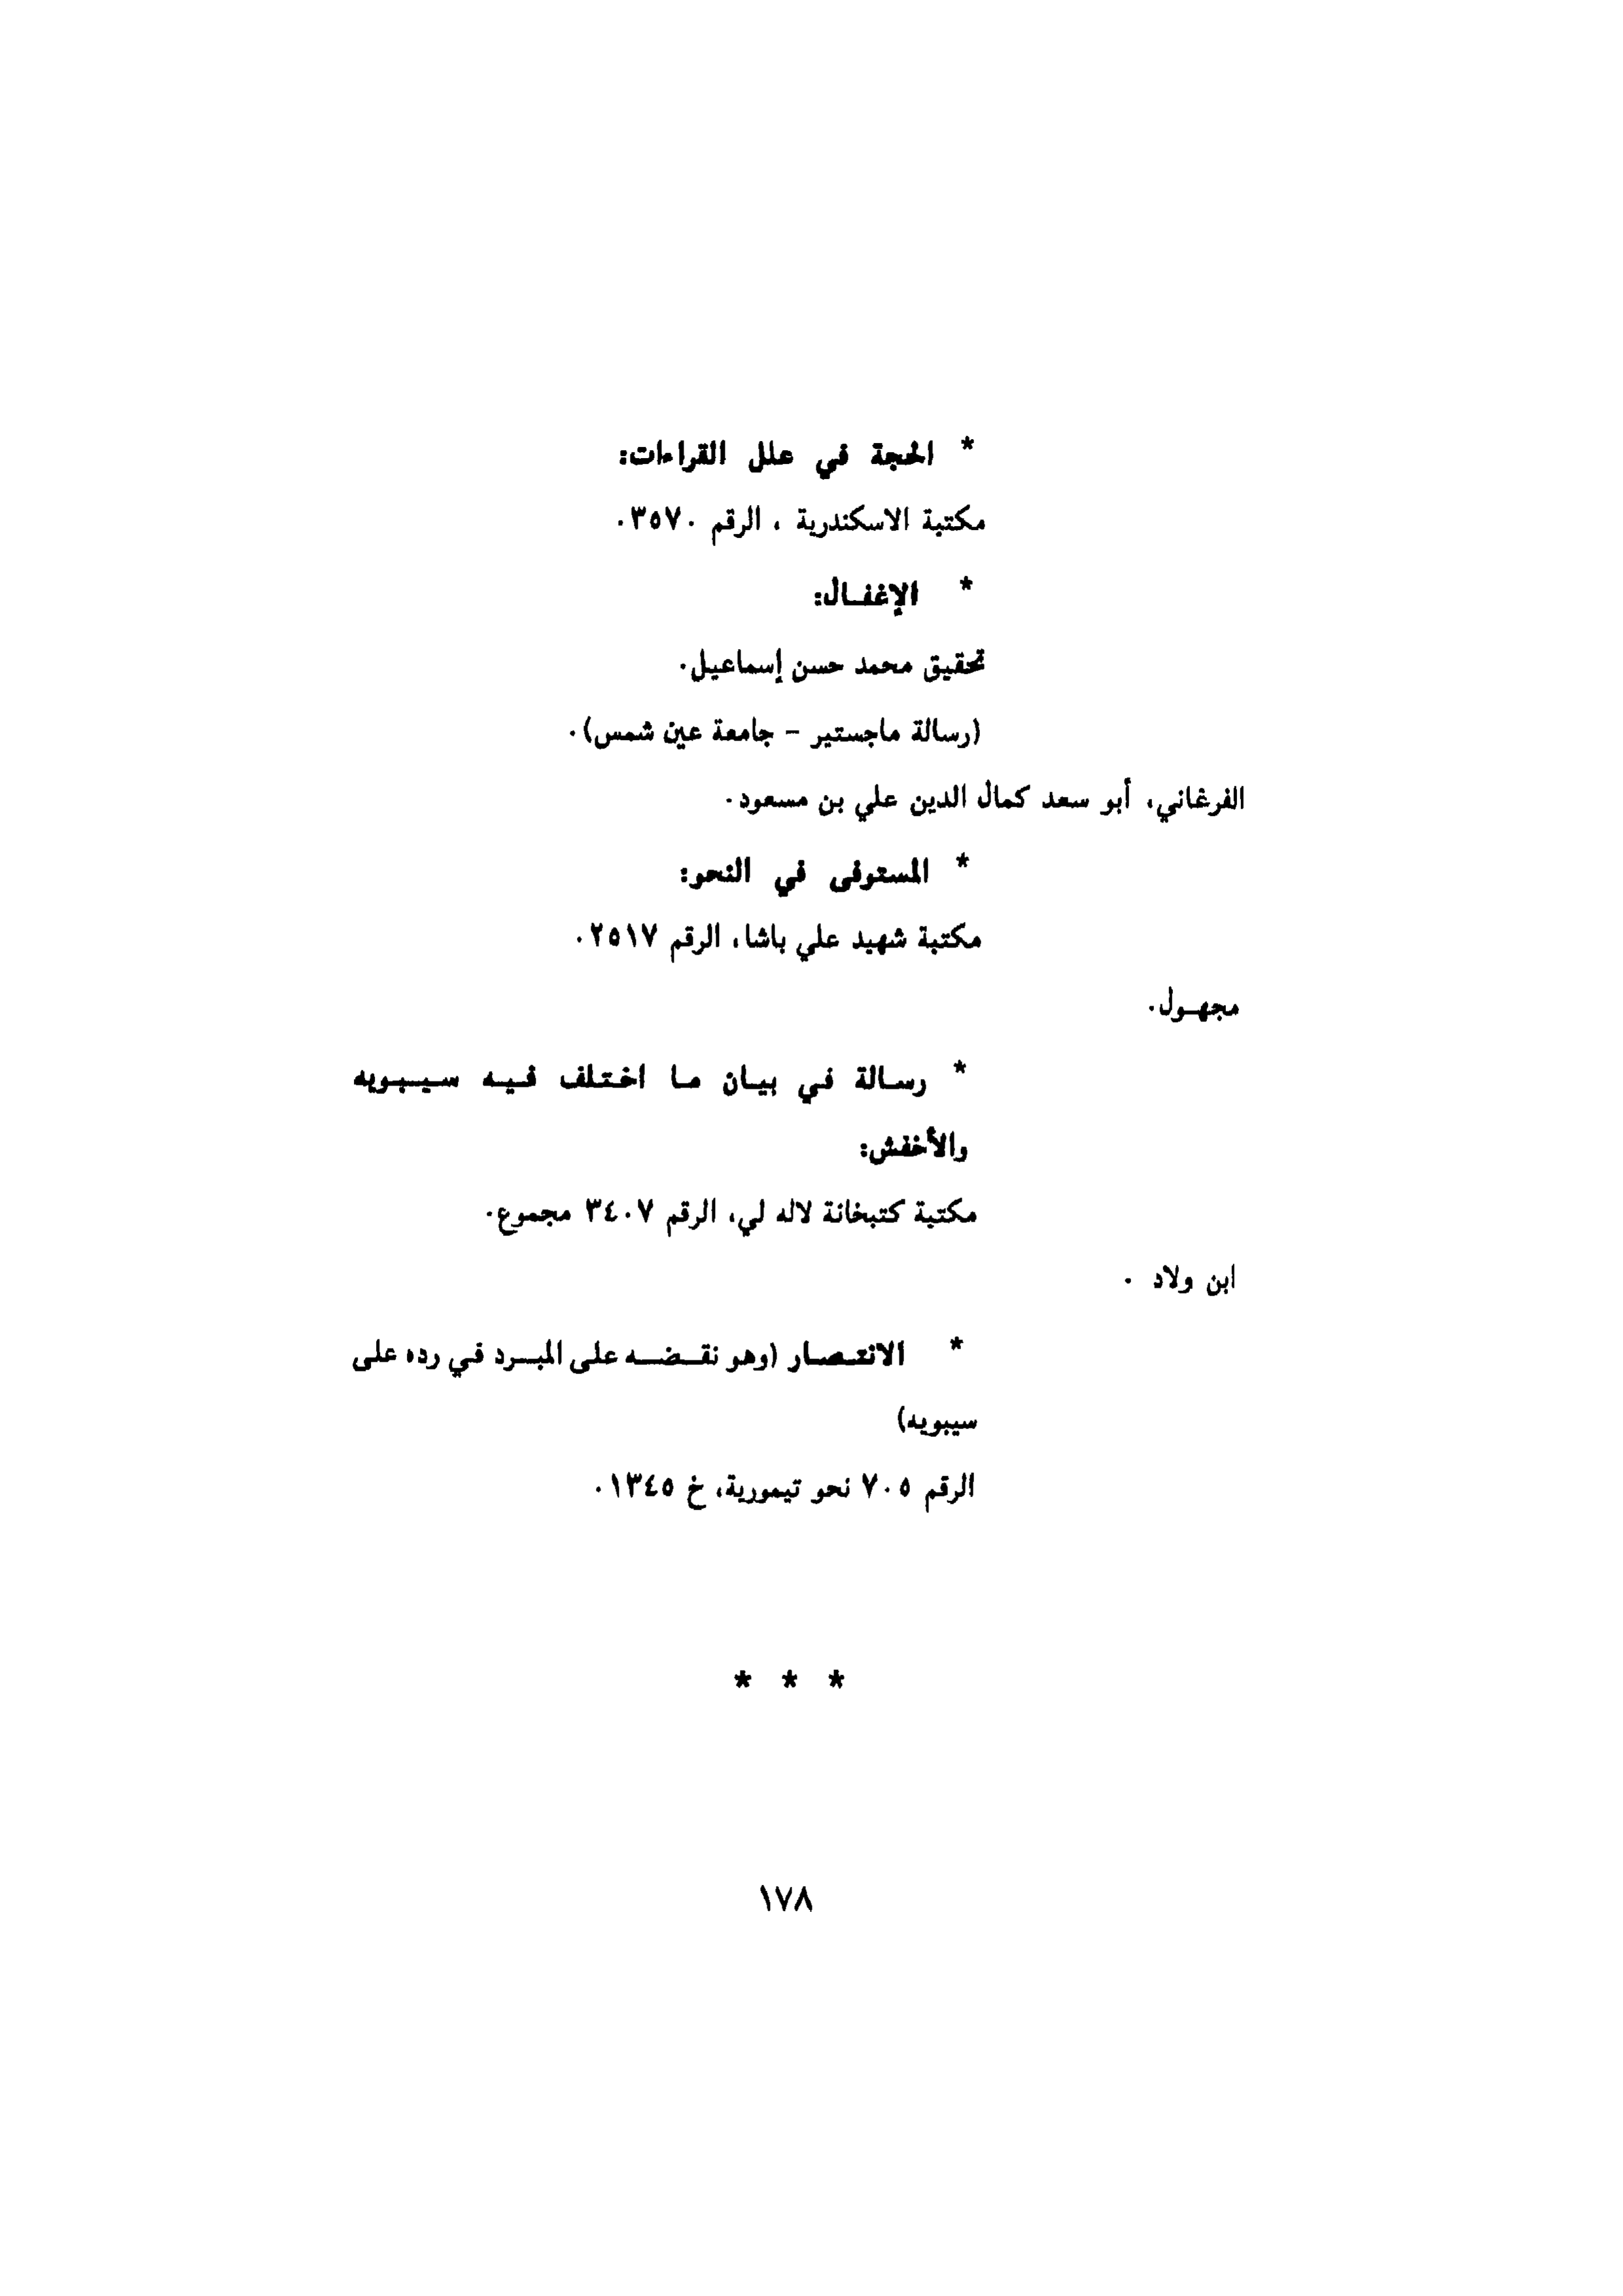 * الحجة في علل القراءات:
مكتبة الاسكندرية ، الرقم ٣٥٧٠.
* الإغفـال:
تحقيق محمد حسن إسماعيل.
(رسالة ماجستير - جامعة عين شمس).
الفرغاني، أبو سعد كمال الدين علي بن مسعود.
* المستوفى في النحو:
مكتبة شهيد علي باشا، الرقم ٢٥١٧.
مجهـول.
* رسـالة في بيـان مـا اختـلف فـيـه سـيـبـويه
والأخفش:
مكتبة كتبخانة لاله لي، الرقم ٣٤٠٧ مجموع.
ابن ولاد .
* الانتـصـار (وهو نقـضـه على المبـرد في رده على
سيبويه)
الرقم ٧٠٥ نحو تيمورية، خ ١٣٤٥.
* * *
١٧٨